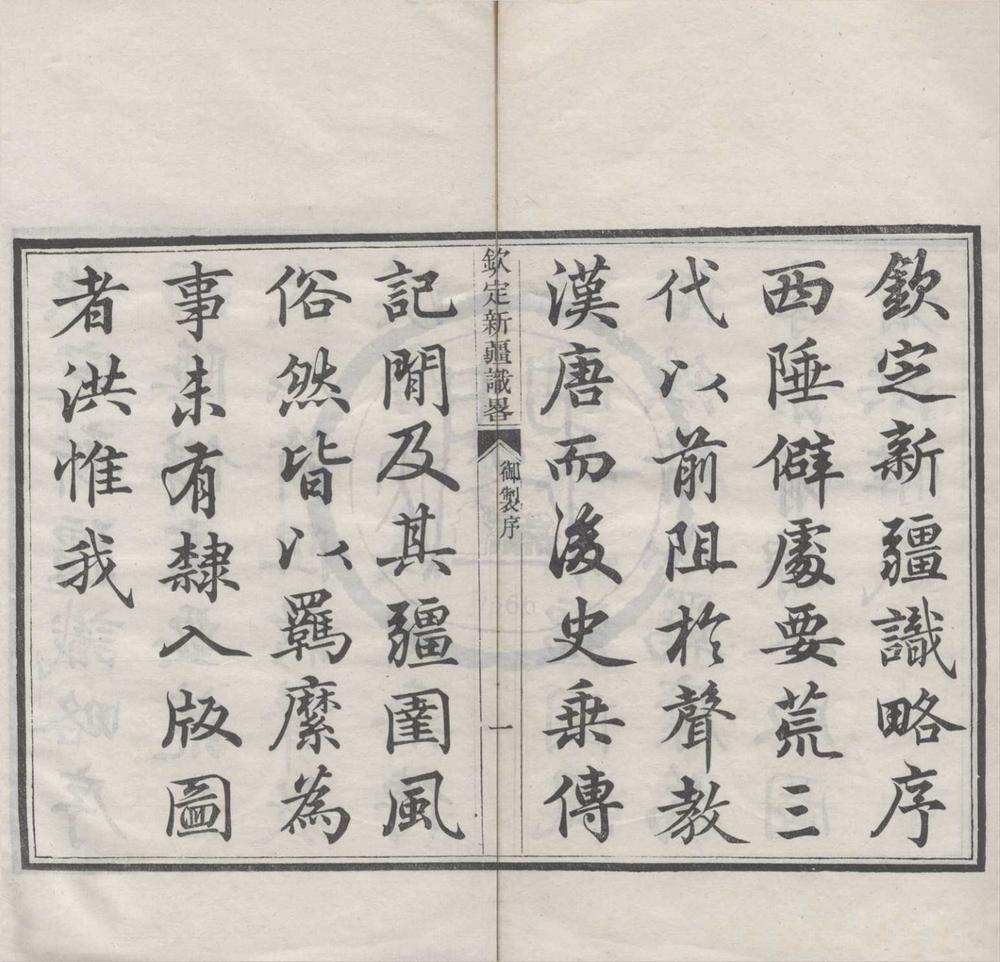 欽定新疆識略序
西陲僻處要荒三
代以前阻於聲教
漢唐而後史乗傳
欽定新疆識畧
御製序
一
記閒及其疆圉風
俗然皆以羈縻為
事未有隸入版圖
者洪惟我